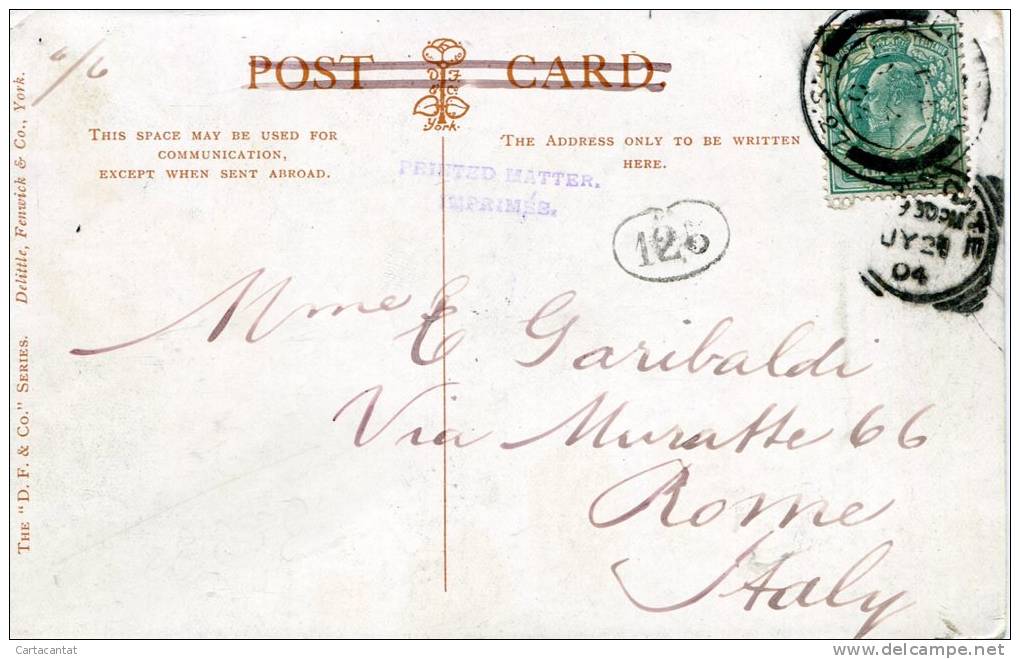 6/6
POST CARD.
D F
& Co
York.
THIS SPACE MAY BE USED FOR
COMMUNICATION,
EXCEPT WHEN SENT ABROAD.
THE ADDRESS ONLY TO BE WRITTEN
HERE.
PRINTED MATTER.
IMPRIMÉS.
125
JY 28
04
Mme E Garibaldi
Via Muratte 66
Rome
Italy
THE "D. F. & CO." SERIES. Delittle, Fenwick & Co., York.
Cartacantat
delcampe.net